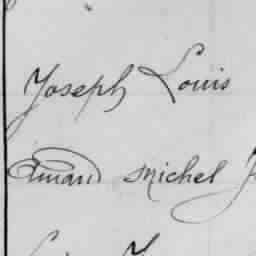 Joseph Louis
Amand Michel J